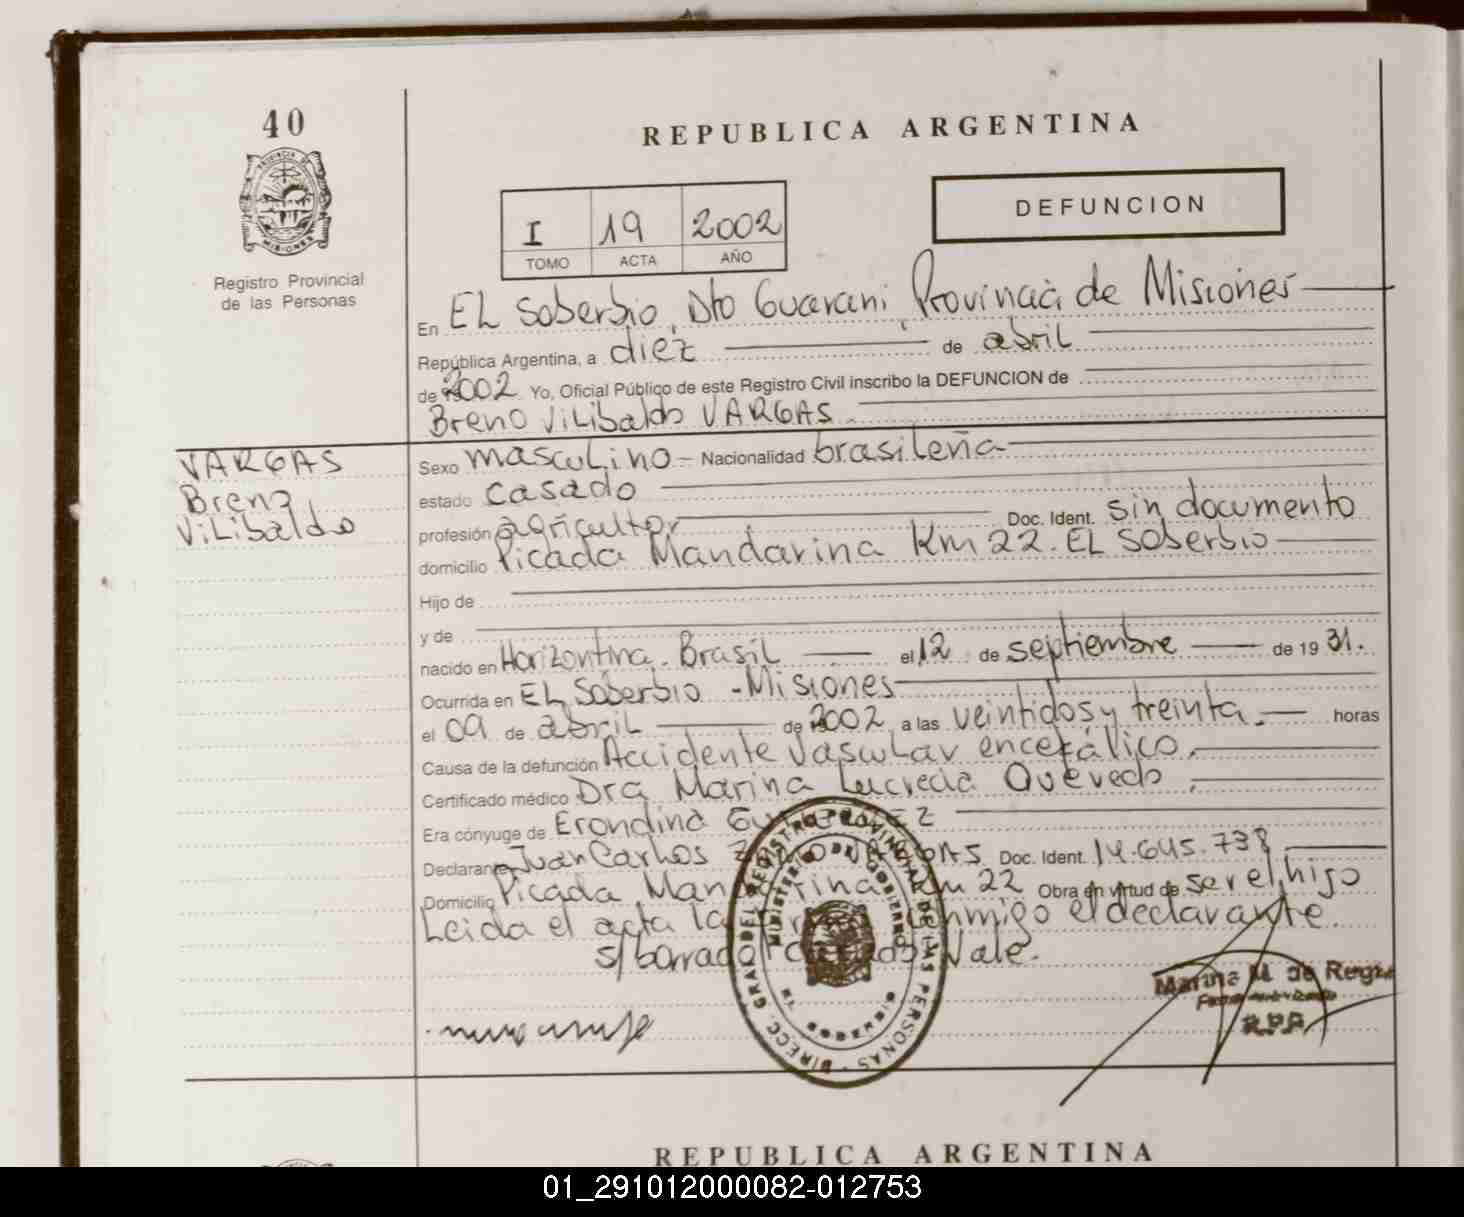 40
REPUBLICA ARGENTINA
PROVINCIA DE
MISIONES
Registro Provincial
de las Personas
I 19 2002
TOMO ACTA AÑO
DEFUNCION
En EL Soberbio, Dto Guarani, Provincia de Misiones
República Argentina, a diez de abril
de 2002 Yo, Oficial Público de este Registro Civil inscribo la DEFUNCION de
Breno Vilibaldo VARGAS
VARGAS
Breno
Vilibaldo
Sexo masculino - Nacionalidad brasileña
estado casado
profesión agricultor Doc. Ident. sin documento
domicilio Picada Mandarina Km 22. EL Soberbio
Hijo de
y de
nacido en Horizontina. Brasil el 12 de septiembre de 1931.
Ocurrida en EL Soberbio - Misiones
el 09 de abril de 2002 a las veintidos y treinta. horas
Causa de la defunción Accidente vascular encefálico.
Certificado médico Dra Marina Lucrecia Quevedo
Era cónyuge de Erondina
Declarante Juan Carlos VARGAS Doc. Ident. 14.645.738
Domicilio Picada Mandarina Km 22 Obra en virtud de ser el hijo
Leida el acta la conmigo el declarante.
s/borrado: Vale.
DIRECC. GRAL DEL REGISTRO PROVINCIAL DE LAS PERSONAS
MINISTERIO DE GOBIERNO
EL SOBERBIO
Marina M. de
R.P.P.
REPUBLICA ARGENTINA
01_291012000082-012753